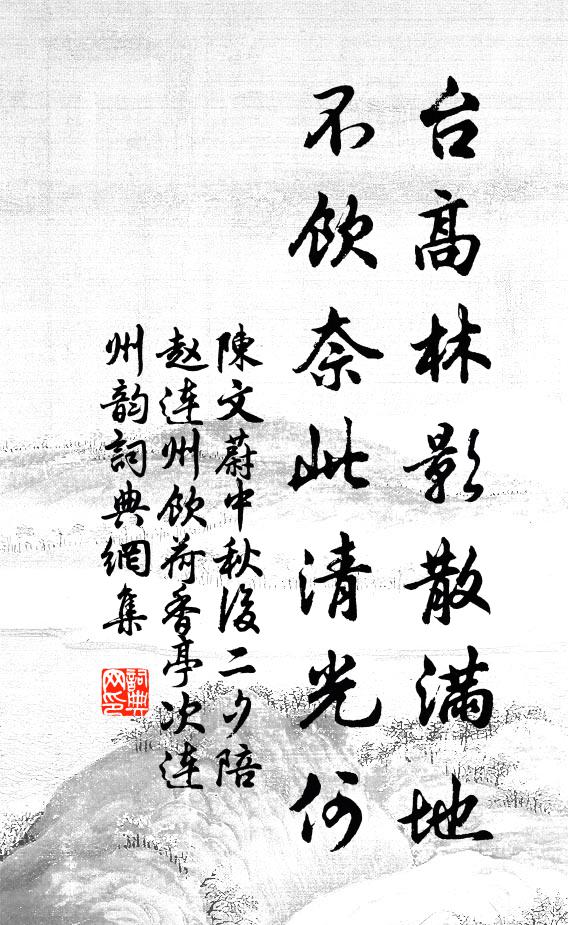 台高林影散滿地
不飲奈此清光何
陳文蔚中秋後二夕陪
趙连州飲荷香亭次连
州韵詞典網集
詞典网印